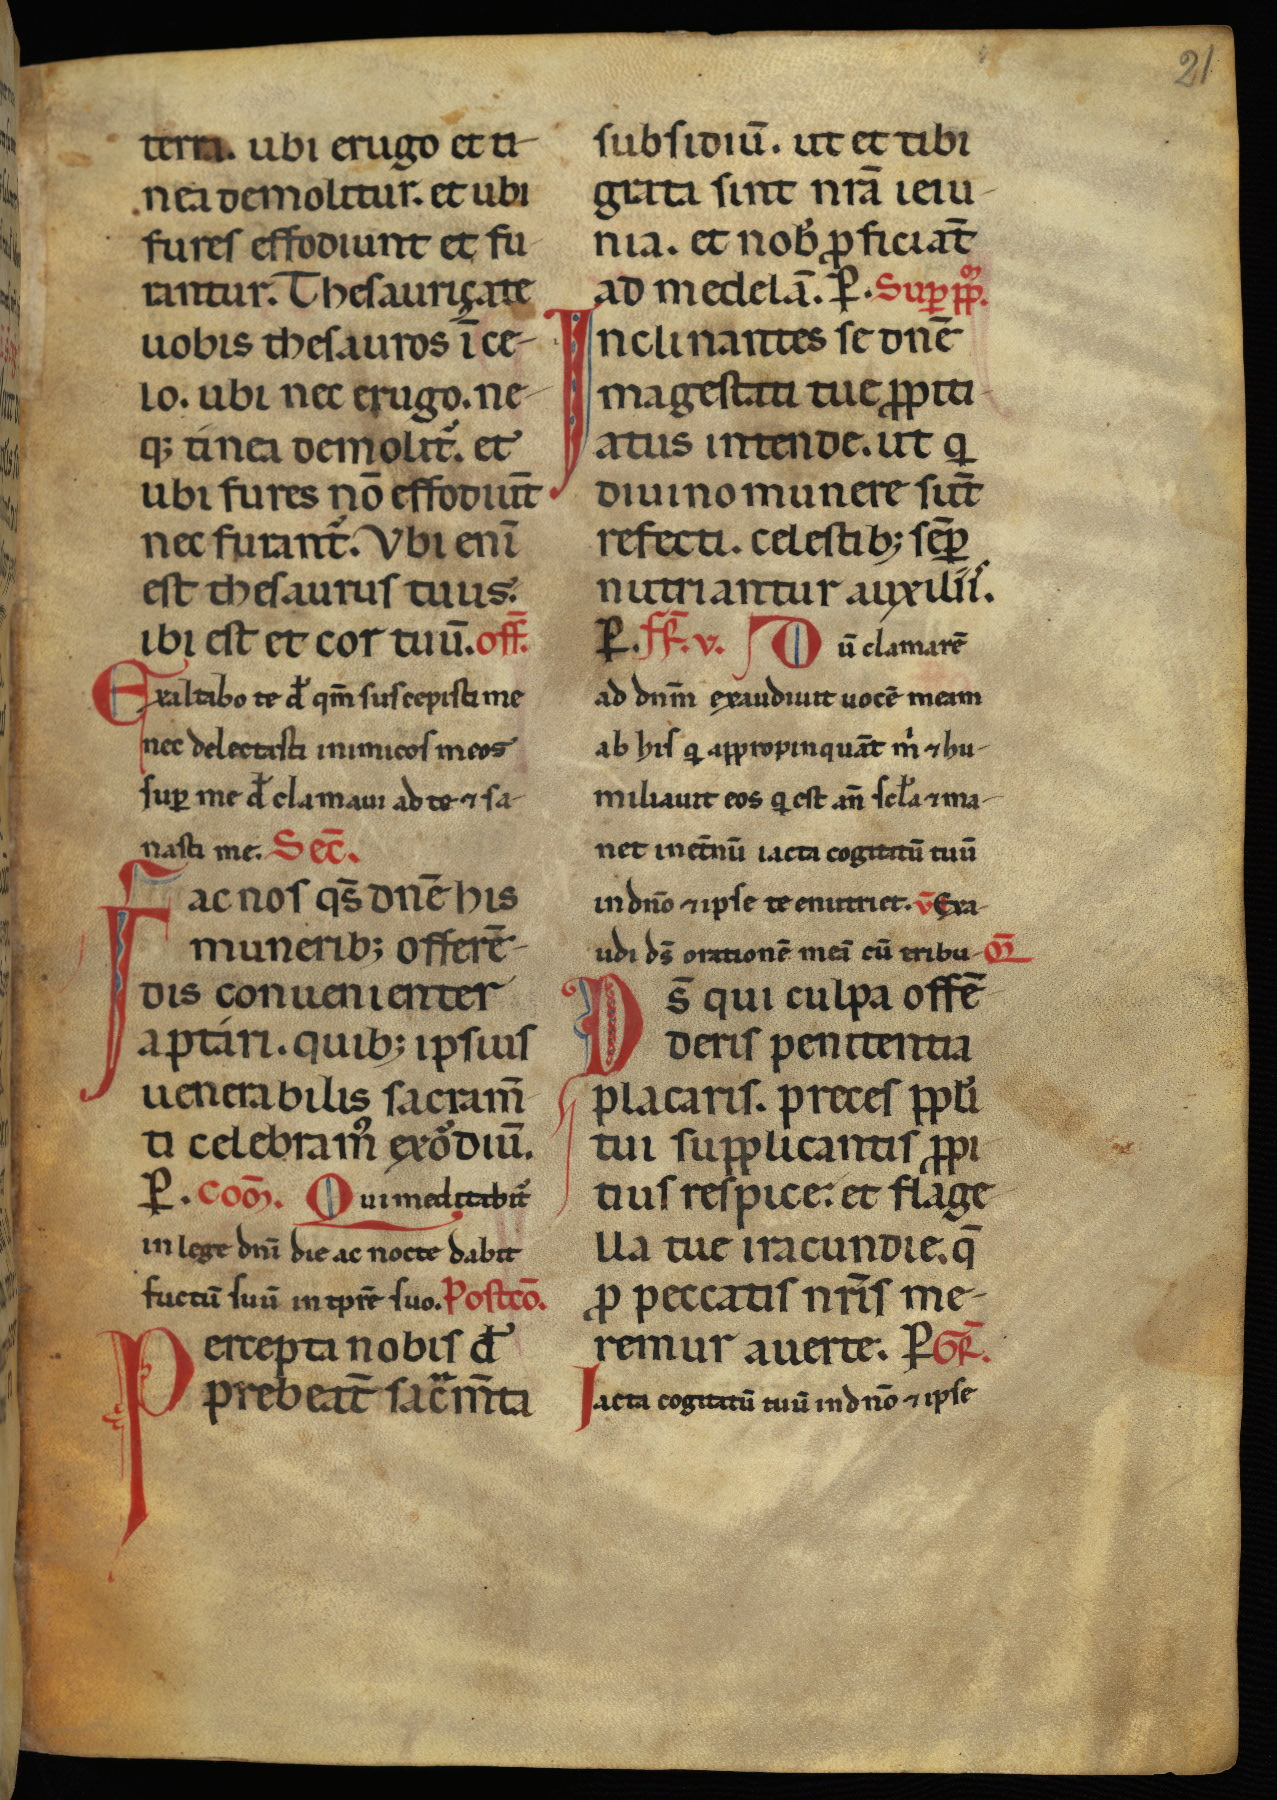 21
terra. ubi erugo et ti-
nea demolitur. et ubi
fures effodiunt et fu-
rantur. Thesauriçate
uobis thesauros ī ce-
lo. ubi nec erugo. ne-
q; tinea demolit᷑. et
ubi fures nō effodiūt
nec furant᷑. Vbi enī
est thesaurus tuus.
ibi est et cor tuū. off̄.
Exaltabo te d̄ qm̄ suscepisti me
nec delectasti inimicos meos
suꝑ me d̄ clamaui ad te ⁊ sa-
nasti me. Sec̄.
Fac nos qs̄ dn̄e his
munerib; offerē-
dis conuenienter
aptari. quib; ipsius
uenerabilis sacram̄-
ti celebram᷒ exordiū.
P. com̄. Qui meditabit᷑
in lege dn̄i die ac nocte dabit
fuctū suū in tp̄re suo. Postcō.
Percepta nobis d̄
prebeāt sac̄m̄ta
subsidiū. ut et tibi
grata sint nr̄a ieiu-
nia. et nob̄ ꝓficiāt
ad medelā. P. Suꝑ pp̄.
Inclinantes se dn̄e
magestati tue ꝓpiti-
atus intende. ut q
diuino munere sūt
refecti. celestib; sēꝑ
nutriantur auxiliis.
P. fr̄. v. Dū clamarē
ad dnm̄ exaudiuit uocē meam
ab his q appropinquāt m̄ ⁊ hu-
miliauit eos q est an̄ scl̄a ⁊ ma-
net inet̄nū iacta cogitatū tuū
in dn̄o ⁊ ipse te enutriet. v̄ Exa-
udi ds̄ orationē meā cū tribu- or̄
Ds̄ qui culpa offē-
deris penitentia
placaris. preces ppl̄i
tui supplicantis ꝓpi
tius respice. et flage
lla tue iracundie. q̄
ꝓ peccatis nr̄is me-
remur auerte. P Gr̄.
Iacta cogitatū tuū in dn̄o ⁊ ipse